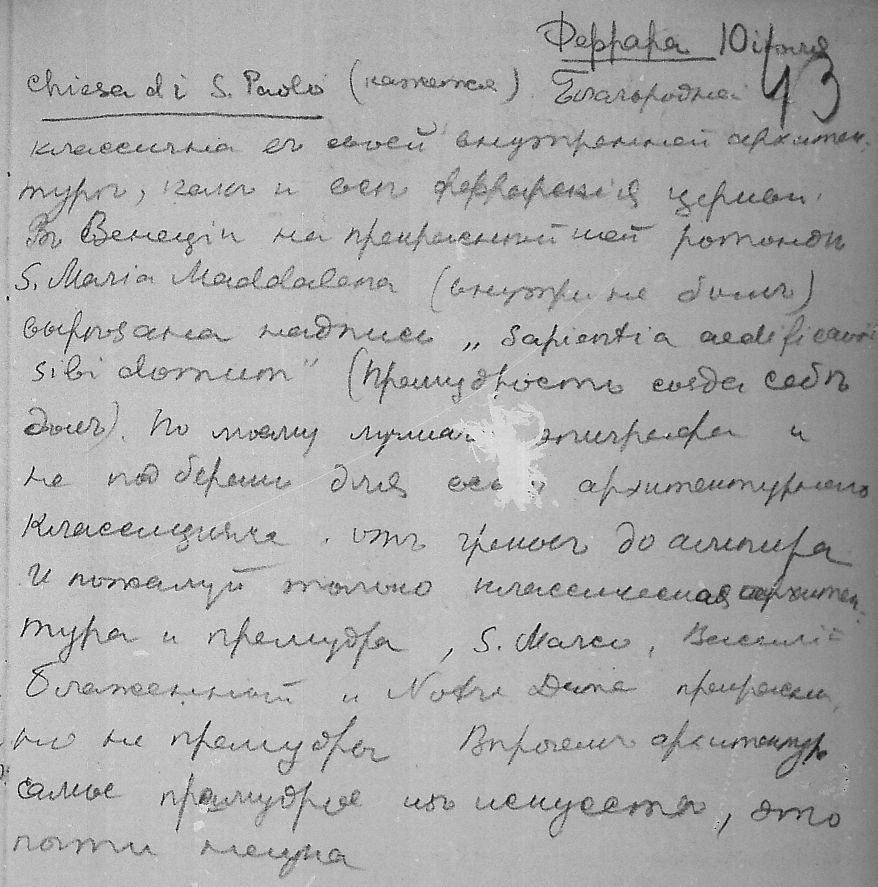 Феррара 10 июля
43
Chiesa di S. Paolo (кажется) Благородная
классична въ своей внутренней архитек-
туре, какъ и все феррарскія церкви.
Въ Венеціи на прекраснейшей ротонде
S. Maria Maddalena (внутри не былъ)
вырезана надпись „Sapientia aedificavit
sibi domum" (Премудрость созда себъ
домъ). По моему лучшаго эпиграфа и
не подберешь для всего архитектурнаго
классицизма отъ грековъ до ампира
И пожалуй только классическая архитек-
тура и премудра, S. Marco, Василій
Блаженный и Notre Dame прекрасны,
но не премудры Впрочемъ архитектура
самое премудрое изъ искусствъ, это
почти наука